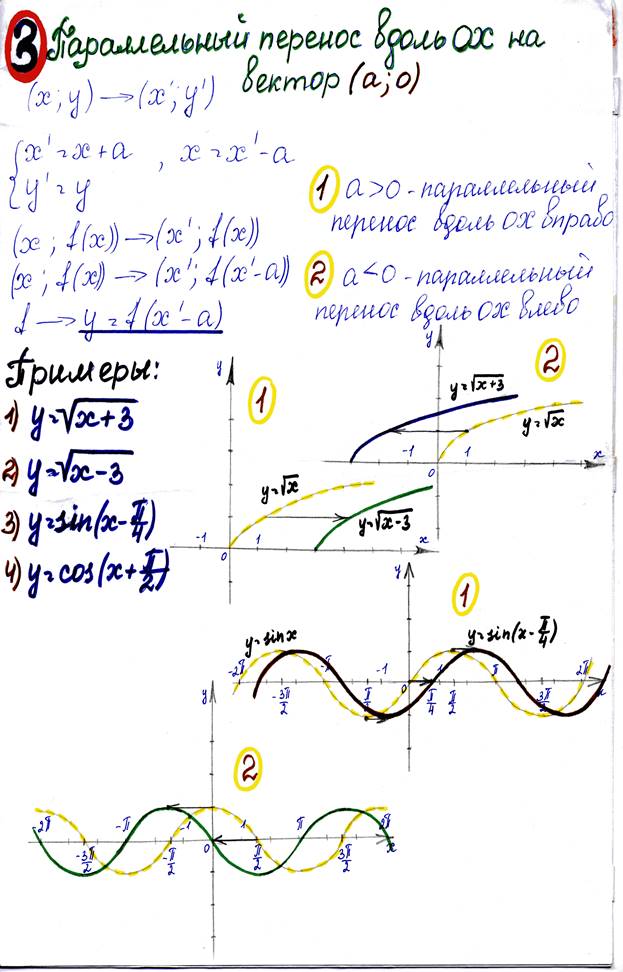 3 Параллельный перенос вдоль OX на
вектор (a; 0)
(x; y) → (x'; y')
{x' = x + a , x = x' - a
{y' = y
(x ; f(x)) → (x' ; f(x))
(x ; f(x)) → (x' ; f(x' - a))
f → y = f(x' - a)
1 a > 0 - параллельный
перенос вдоль OX вправо
2 a < 0 - параллельный
перенос вдоль OX влево
Примеры:
1) y = √(x + 3)
2) y = √(x - 3)
3) y = sin(x - π/4)
4) y = cos(x + π/2)
y
1
y = √x
y = √(x-3)
-1 0 1 x
y
2
y = √(x+3)
y = √x
-1 0 1 x
y
1
y = sin x
y = sin(x - π/4)
-2π -3π/2 -π π/2 -1 0 π/4 π/2 π 3π/2 2π x
y
2
-2π -3π/2 -π -π/2 -1 0 1 π/2 π 3π/2 2π x